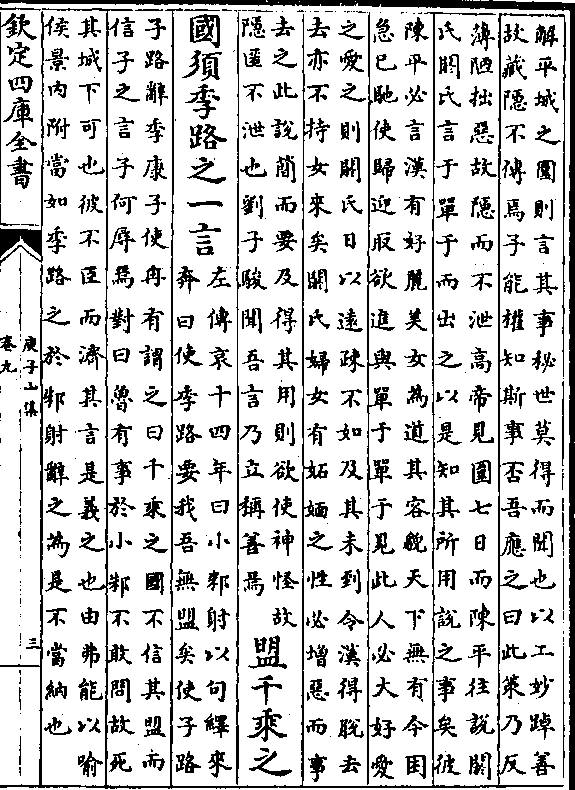 解平城之圍則言其事秘世莫得而聞也以工妙踔善
故藏隱不傳焉子能權知斯事否吾應之曰此策乃反
薄陋拙惡故隱而不泄高帝見圍七日而陳平往說閼
氏閼氏言于單于而出之以是知其所用說之事矣彼
陳平必言漢有好麗美女為道其容貌天下無有今困
急已馳使歸迎取欲進與單于單于見此人必大好愛
之愛之則閼氏日以遠疎不如及其未到令漢得脫去
去亦不持女來矣閼氏婦女有妬媔之性必增惡而事
去之此說簡而要及得其用則欲使神怪故
隱匿不泄也劉子駿聞吾言乃立稱善焉
盟千乘之
國須季路之一言
左傳哀十四年曰小邾射以句繹來
奔曰使季路要我吾無盟矣使子路
子路辭季康子使冉有謂之曰千乘之國不信其盟而
信子之言子何辱焉對曰魯有事於小邾不敢問故死
其城下可也彼不臣而濟其言是義之也由弗能以喻
侯景内附當如季路之於邾射辭之為是不當納也
欽定四庫全書
庾子山集
卷九
三